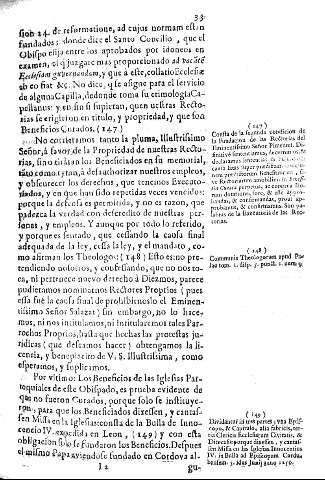 33
sion 24. de reformatione, ad cujus normam estan
fundados; donde dice el Santo Concilio, que el
Obispo elija entre los aprobados por idoneos en
examen, el q juzgare mas proporcionado ad vacātē
Ecclesiam gubernandam, y que à este, collatio Ecclesiæ
ab eo fiat &c. No dice, q se asigne para el servicio
de alguna Capilla, de donde toma su etimologia Ca-
pellanus: y en sin si supieran, quen nuestras Recto-
rias se erigieron en titulo, y propriedad, y que son
Beneficios Curados, (147)
No correríamos tanto la pluma, Illustrissimo
Señor, à favor de la Propriedad de nuestras Recto-
rias, sino tirâran los Beneficiados en su memorial,
tanto como tiran, à desauthorizar nuestros empleos,
y obscurecer los derechos, que traemos Executo-
riados, y en que han sido repetidas veces vencidos:
porque la defensa es permitida, y no es razon, que
padezca la verdad con descredito de nuestras per-
sonas, y empleos. Y aunque por todo lo referido,
y porque es sentado, que cessando la causa final
adequada de la ley, cessa la ley, y el mandato, co-
mo afirman los Theologos: (148) Esto es: no pre-
tendiendo nosotros, y confessando, que no nos to-
ca, ni pertenece nuevo derecho à Diezmos, parece
pudieramos nominarnos Rectores Proprios (pues
essa fuè la causa final de prohibirselo el Eminen-
tissimo Señor Salazar) sin embargo, no lo hace-
mos, ni nos intitulamos, ni intitularemos tales Par-
rochos Proprios, hasta que hechas las protestas ju-
ridicas (que deseamos hacer) obtengamos la li-
cencia, y beneplacito de V. S. Illustrissima, como
esperamos, y suplicamos.
Por ultimo: Los Beneficios de las Iglesias Par-
roquiales de este Obispado, es prueba evidente de
que no fueron Curados, porque solo se instituye-
ron, para que los Beneficiados dixessen, y cantas-
sen Missa en las Iglesias: consta de la Bulla de Inno-
cencio IV. expedida en Leon, (149) y con esta
obligacion solo se fundaron los Beneficios. Despues
el mismo Papa aviendose fundado en Cordova al-
I 2
gu-
(147)
Consta de la segunda condicion de
la Fundacion de las Rectorias del
Eminentissimo Señor Pimentel.
(148)
Communis Theologorum apud Pa-
lao tom. 1. disp. 3. punct. 1. num 9.
(149)
Dividantur in tres partes; una Epis-
copo, & Capitulo, alia fabricis, ter-
tia Clericis Ecclesiarum Civitatis, &
Diœcesis; porque dixessen, y cantas-
sen Missa en las Iglesias Innocentius
IV. in Bulla ad Episcopum Cordu-